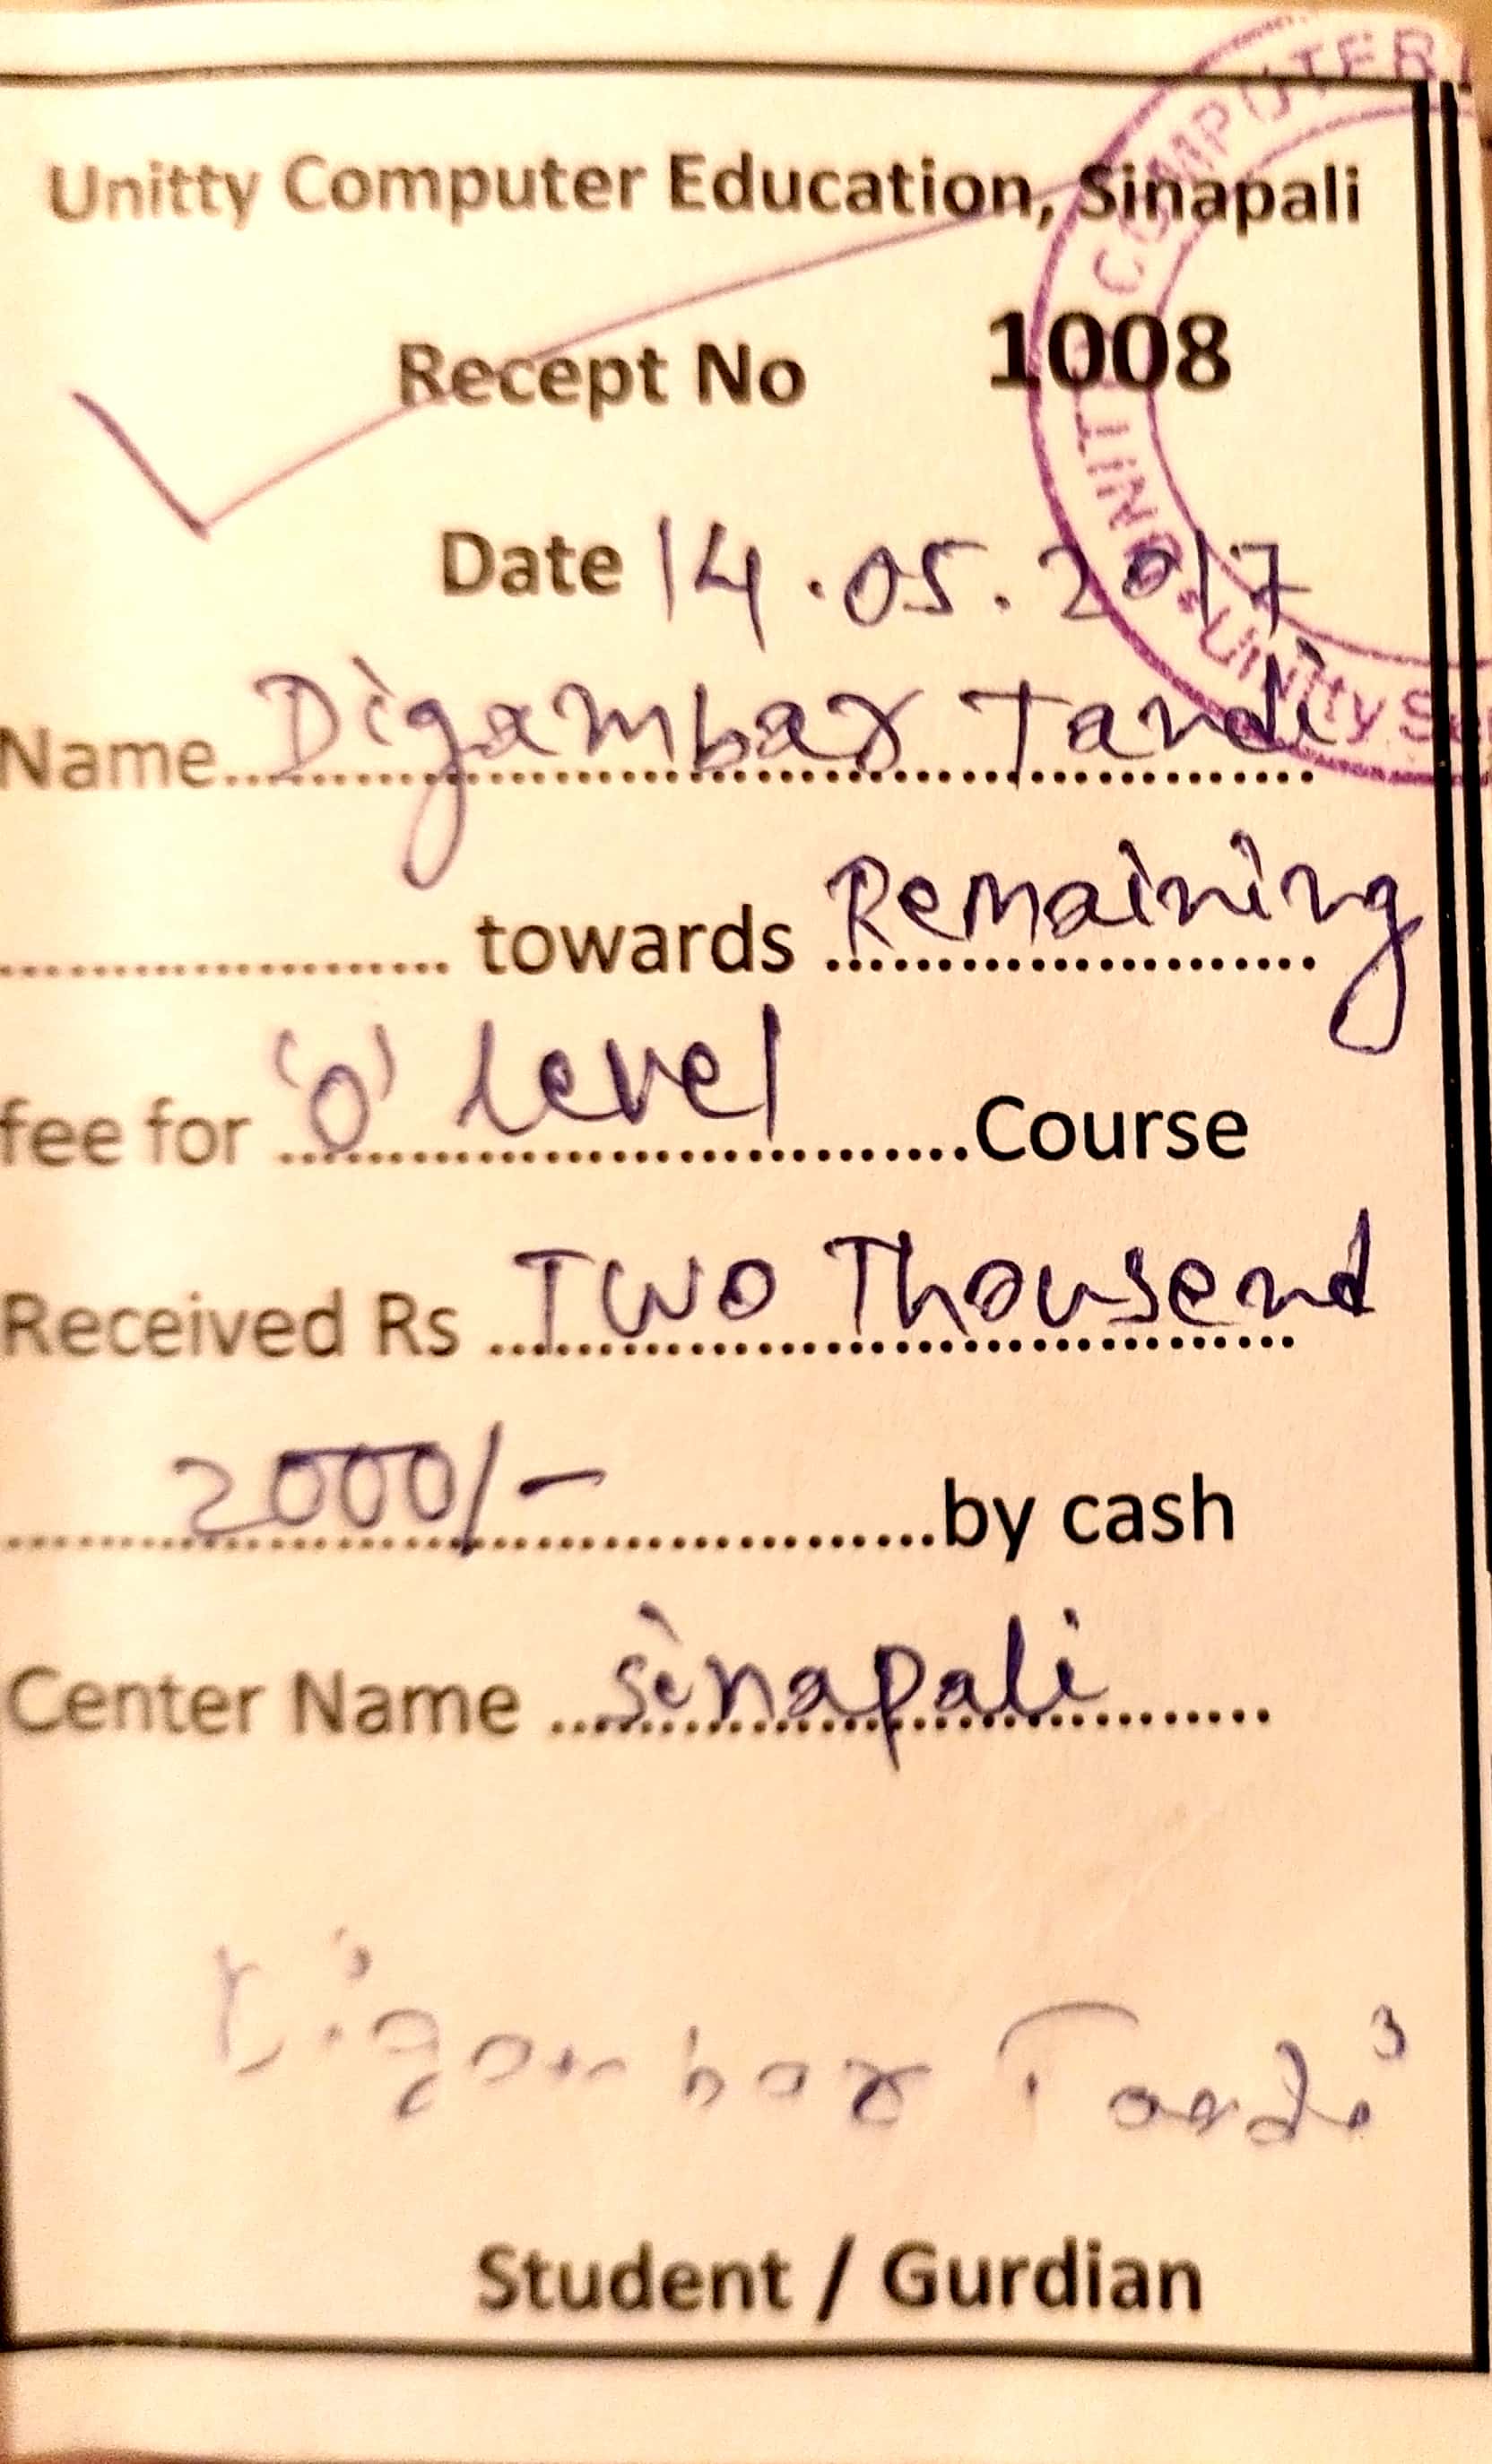 Unitty Computer Education, Sinapali
COMPUTER
UNIT
Unitty
Recept No 1008
Date 14.05.2017
Name.......Digambar Tandi.......
....................... towards Remaining
fee for ...'O' level..........Course
Received Rs ...Two Thousend...
........2000/-...............by cash
Center Name ...Sinapali.........
Digambar Tandi
Student / Gurdian